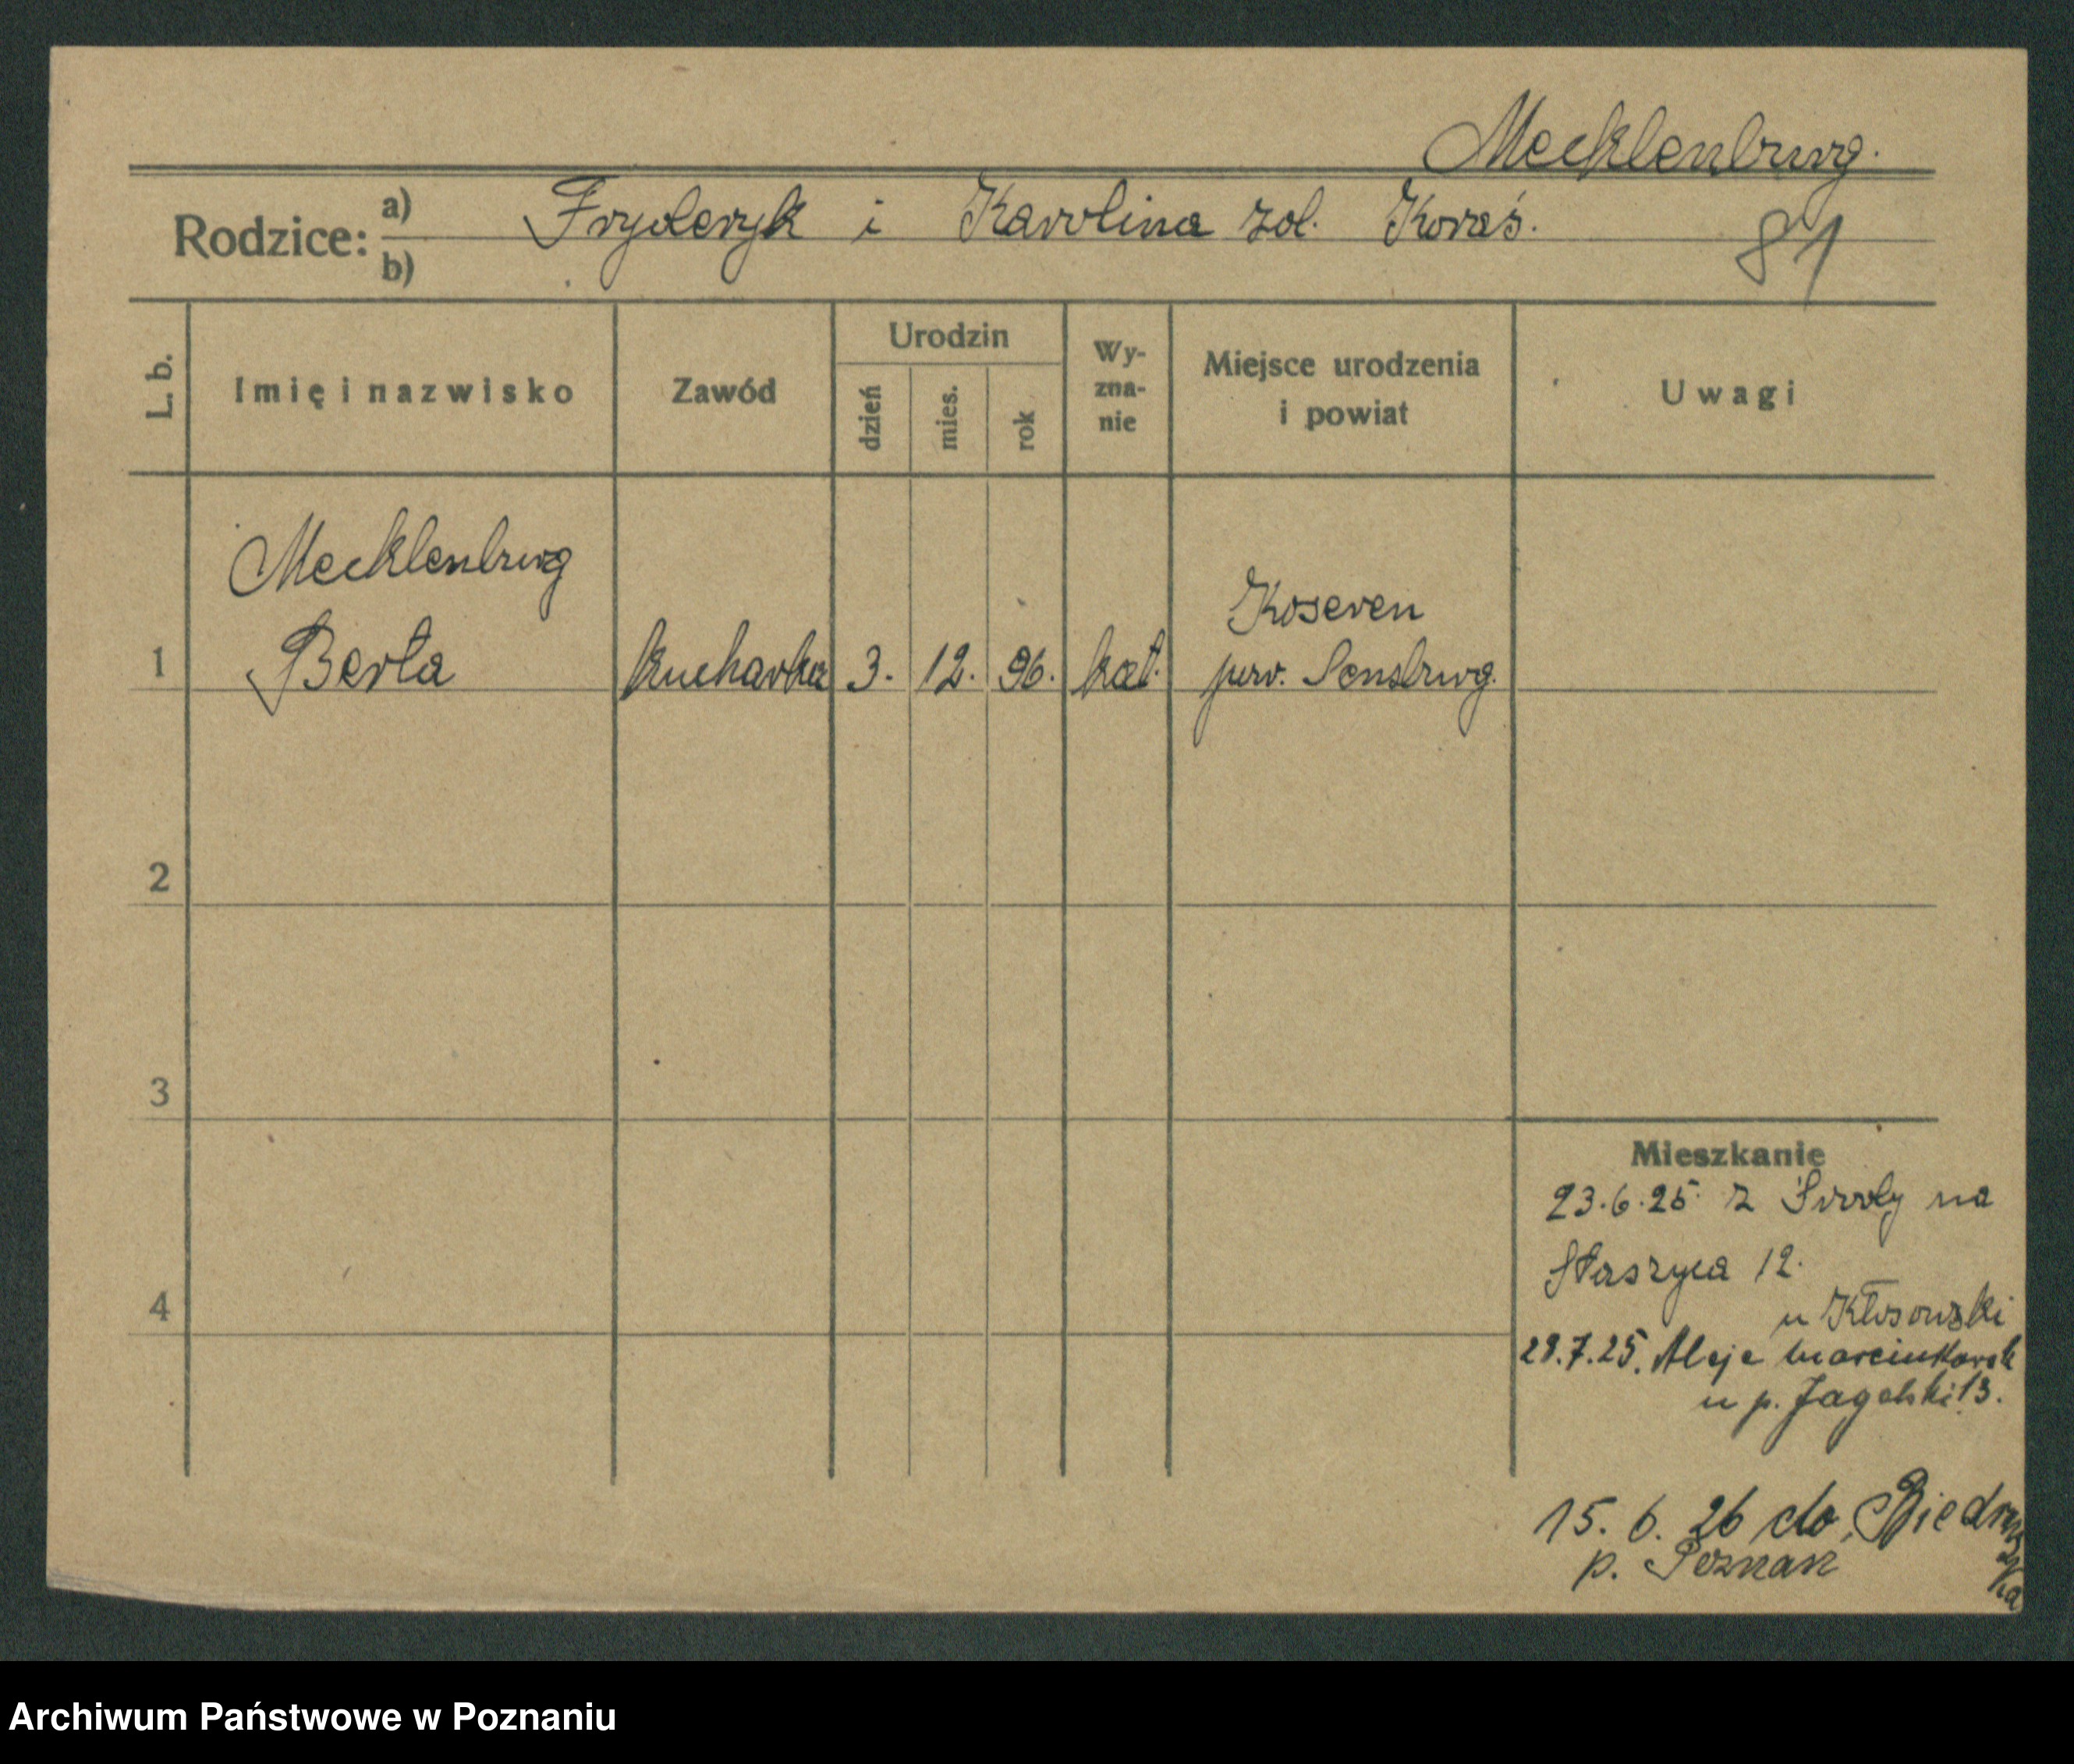 Mecklenburg.
Rodzice: a) Fryderyk i Karolina zd. Koraś.
b)
81
L. b. Imię i nazwisko Zawód Urodzin dzień mies. rok Wy-zna-nie Miejsce urodzenia i powiat Uwagi
Mecklenburg Koseven
1 Berta kucharka 3. 12. 96. kat. pow. Sensburg.
2
3
Mieszkanie
23.6.25 z Środy na
Staszyca 12.
4
u Kłosowski
28.7.25. Aleje Marcinkowsk
u p. Jagalski 13.
15. 6. 26 do Biedruska
p. Poznań
Archiwum Państwowe w Poznaniu